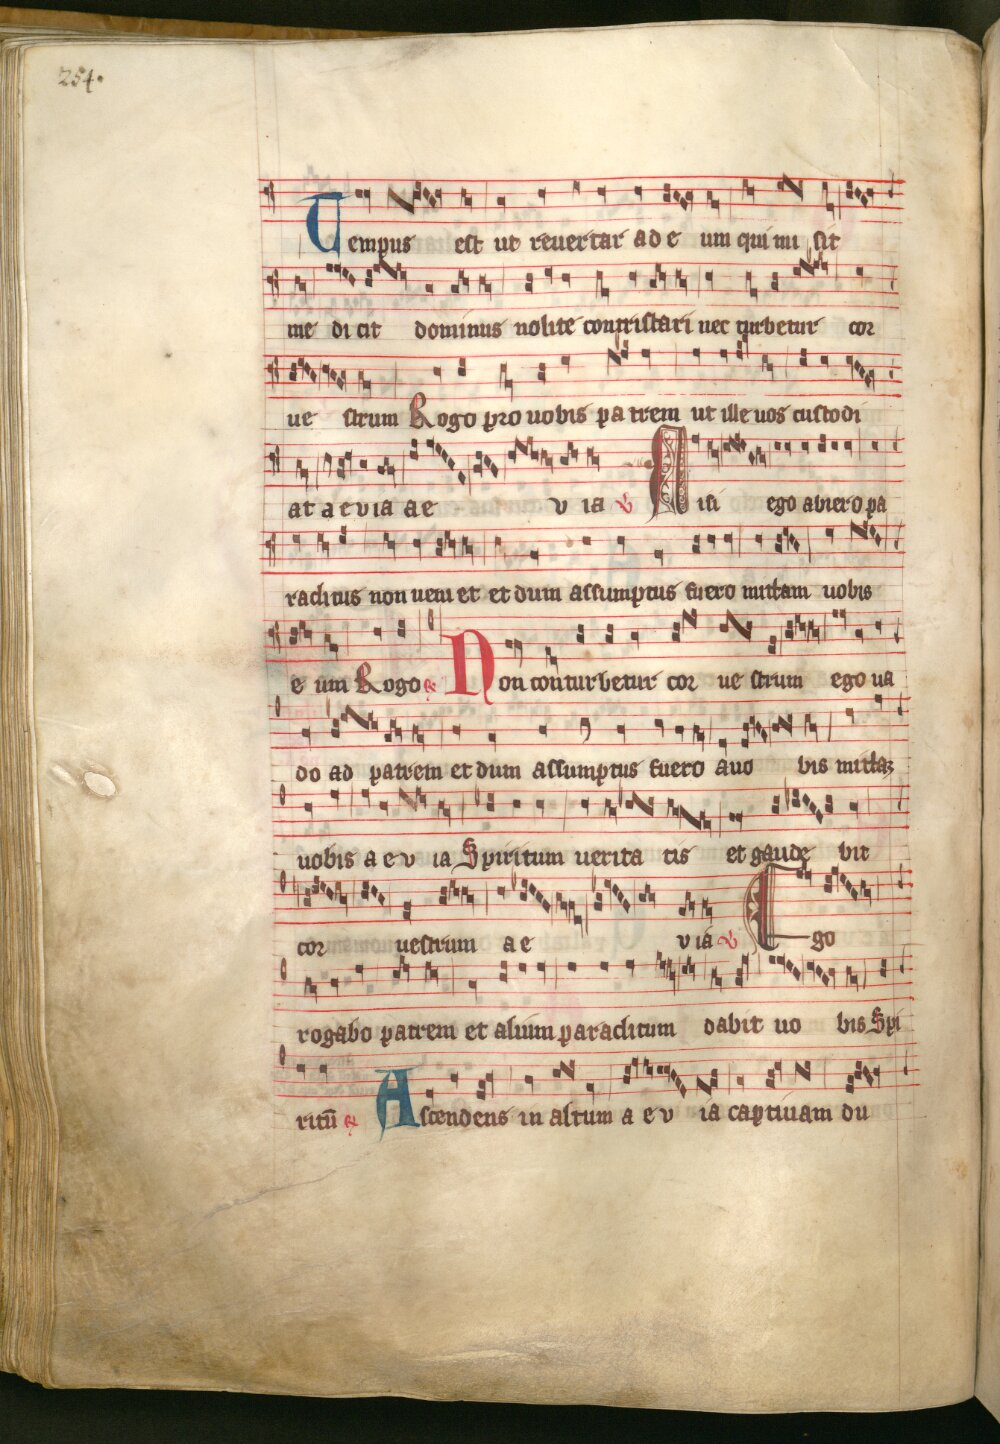 254.
Tempus est ut revertar ad e um qui mi sit
me di cit dominus nolite contristari nec turbetur cor
ve strum Rogo pro vobis pa trem ut ille vos custodi
at a e v ia a e v ia ℣ Nisi ego abiero pa
raclitus non veni et et dum assumptus fuero mittam vobis
e um Rogo Non conturbetur cor ve strum ego va
do ad patrem et dum assumptus fuero a vo bis mittaʒ
vobis a e v ia Spiritum verita tis et gaude bit
cor vestrum a e v ia ℣ Ego
rogabo patrem et alium paraclitum dabit vo bis Spi
ritū Ascendens in altum a e v ia captivam du